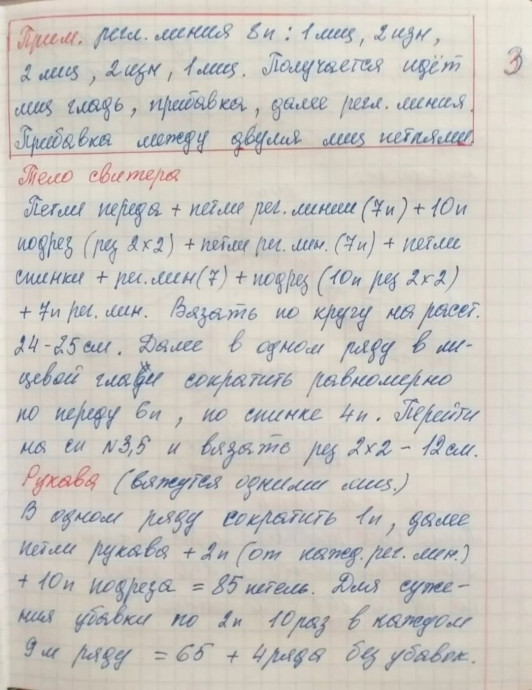 Прим. регл. линия 8п: 1 лиц, 2 изн,
2 лиц, 2 изн, 1 лиц. Получается идёт
лиц гладь, прибавка, далее регл. линия.
Прибавка между двумя лиц петлями.
3
Тело свитера
Петли переда + петли рег. линии (7п) + 10п
подрез (рез 2×2) + петли рег. лин. (7п) + петли
спинки + рег. лин (7) + подрез (10п рез 2×2)
+ 7п рег. лин. Вязать по кругу на расст.
24-25 см. Далее в одном ряду в ли-
цевой глади сократить равномерно
по переду 6п, по спинке 4п. Перейти
на сп №3,5 и вязать рез 2×2 - 12 см.
Рукава (вяжутся одними лиц.)
В одном ряду сократить 1п, далее
петли рукава + 2п (от кажд. рег. лин.)
+ 10п подреза = 85 петель. Для суже-
ния убавки по 2п 10 раз в каждом
9м ряду = 65 + 4 ряда без убавок.